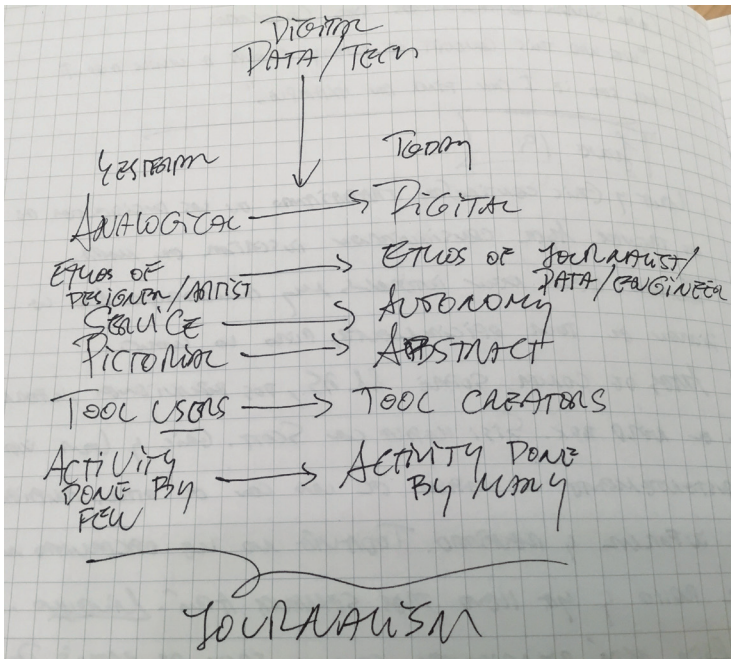 DIGITAL
DATA/TECH
YESTERDAY
TODAY
ANALOGICAL → DIGITAL
ETHOS OF
DESIGNER/ARTIST → ETHOS OF JOURNALIST/
DATA/ENGINEER
SERVICE → AUTONOMY
PICTORIAL → ABSTRACT
TOOL USERS → TOOL CREATORS
ACTIVITY
DONE BY
FEW → ACTIVITY DONE
BY MANY
JOURNALISM